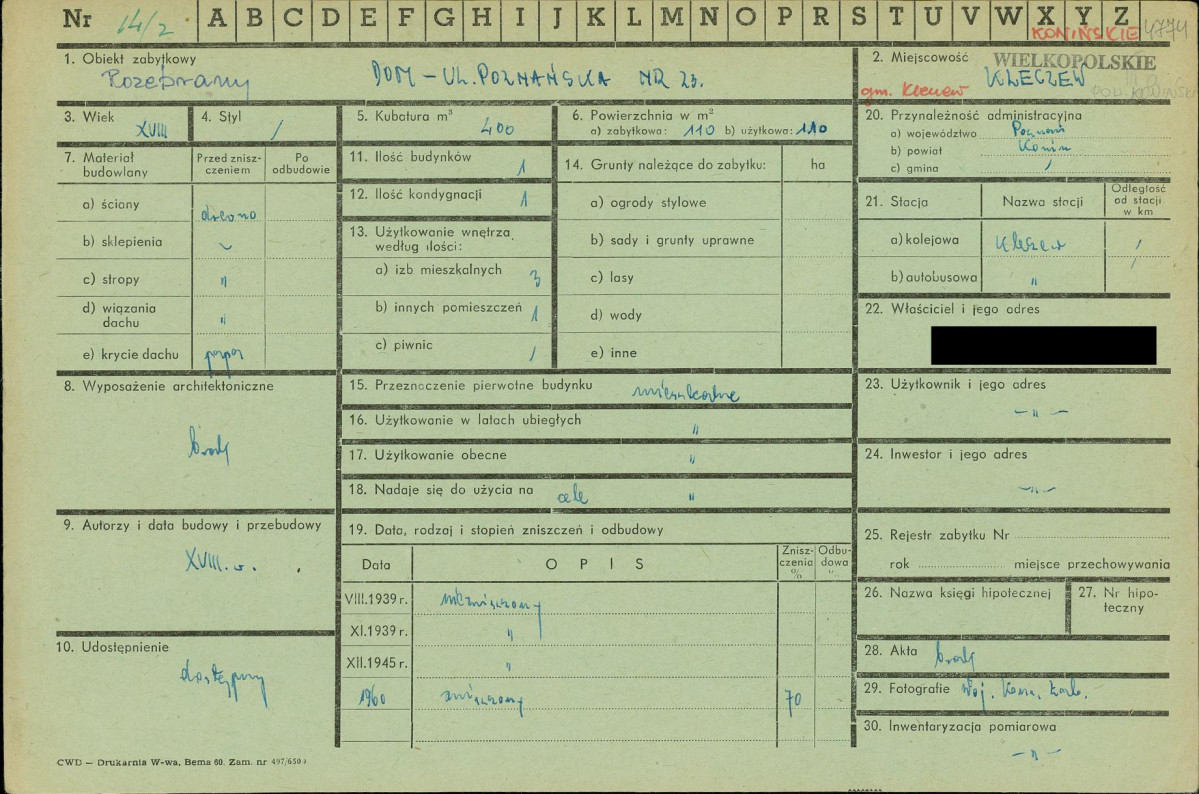 Nr 14/2 A B C D E F G H I J K L M N O P R S T U V W X Y Z
KONIŃSKIE 4774
1. Obiekt zabytkowy
Rozebrany DOM – UL. POZNAŃSKA NR 23.
2. Miejscowość WIELKOPOLSKIE
gm. Kleczew KLECZEW
3. Wiek XVIII
4. Styl /
5. Kubatura m³ 400
6. Powierzchnia w m²
a) zabytkowa: 110 b) użytkowa: 110
20. Przynależność administracyjna
a) województwo Poznań
b) powiat Konin
c) gmina /
7. Materiał budowlany
Przed znisz-
czeniem
Po
odbudowie
a) ściany drewno
b) sklepienia
c) stropy "
d) wiązania
dachu "
e) krycie dachu papa
11. Ilość budynków 1
12. Ilość kondygnacji 1
13. Użytkowanie wnętrza
według ilości:
a) izb mieszkalnych 3
b) innych pomieszczeń 1
c) piwnic /
14. Grunty należące do zabytku: ha
a) ogrody stylowe
b) sady i grunty uprawne
c) lasy
d) wody
e) inne
21. Stacja Nazwa stacji
Odległość
od stacji
w km
a) kolejowa Kleczew /
b) autobusowa " /
22. Właściciel i jego adres
8. Wyposażenie architektoniczne
brak
15. Przeznaczenie pierwotne budynku mieszkalne
16. Użytkowanie w latach ubiegłych "
17. Użytkowanie obecne "
18. Nadaje się do użycia na cele "
23. Użytkownik i jego adres
– " –
24. Inwestor i jego adres
– " –
9. Autorzy i data budowy i przebudowy
XVIII. w.
19. Data, rodzaj i stopień zniszczeń i odbudowy
Data O P I S
Znisz-
czenia
%
Odbu-
dowa
VIII.1939 r. niezniszczony
XI.1939 r. "
XII.1945 r. "
1960 zniszczony 70
25. Rejestr zabytku Nr
rok miejsce przechowywania
26. Nazwa księgi hipotecznej
27. Nr hipo-
teczny
10. Udostępnienie
dostępny
28. Akta brak
29. Fotografie Woj. Kons. Zab.
30. Inwentaryzacja pomiarowa
– " –
CWD – Drukarnia W-wa, Bema 60. Zam. nr 497/650